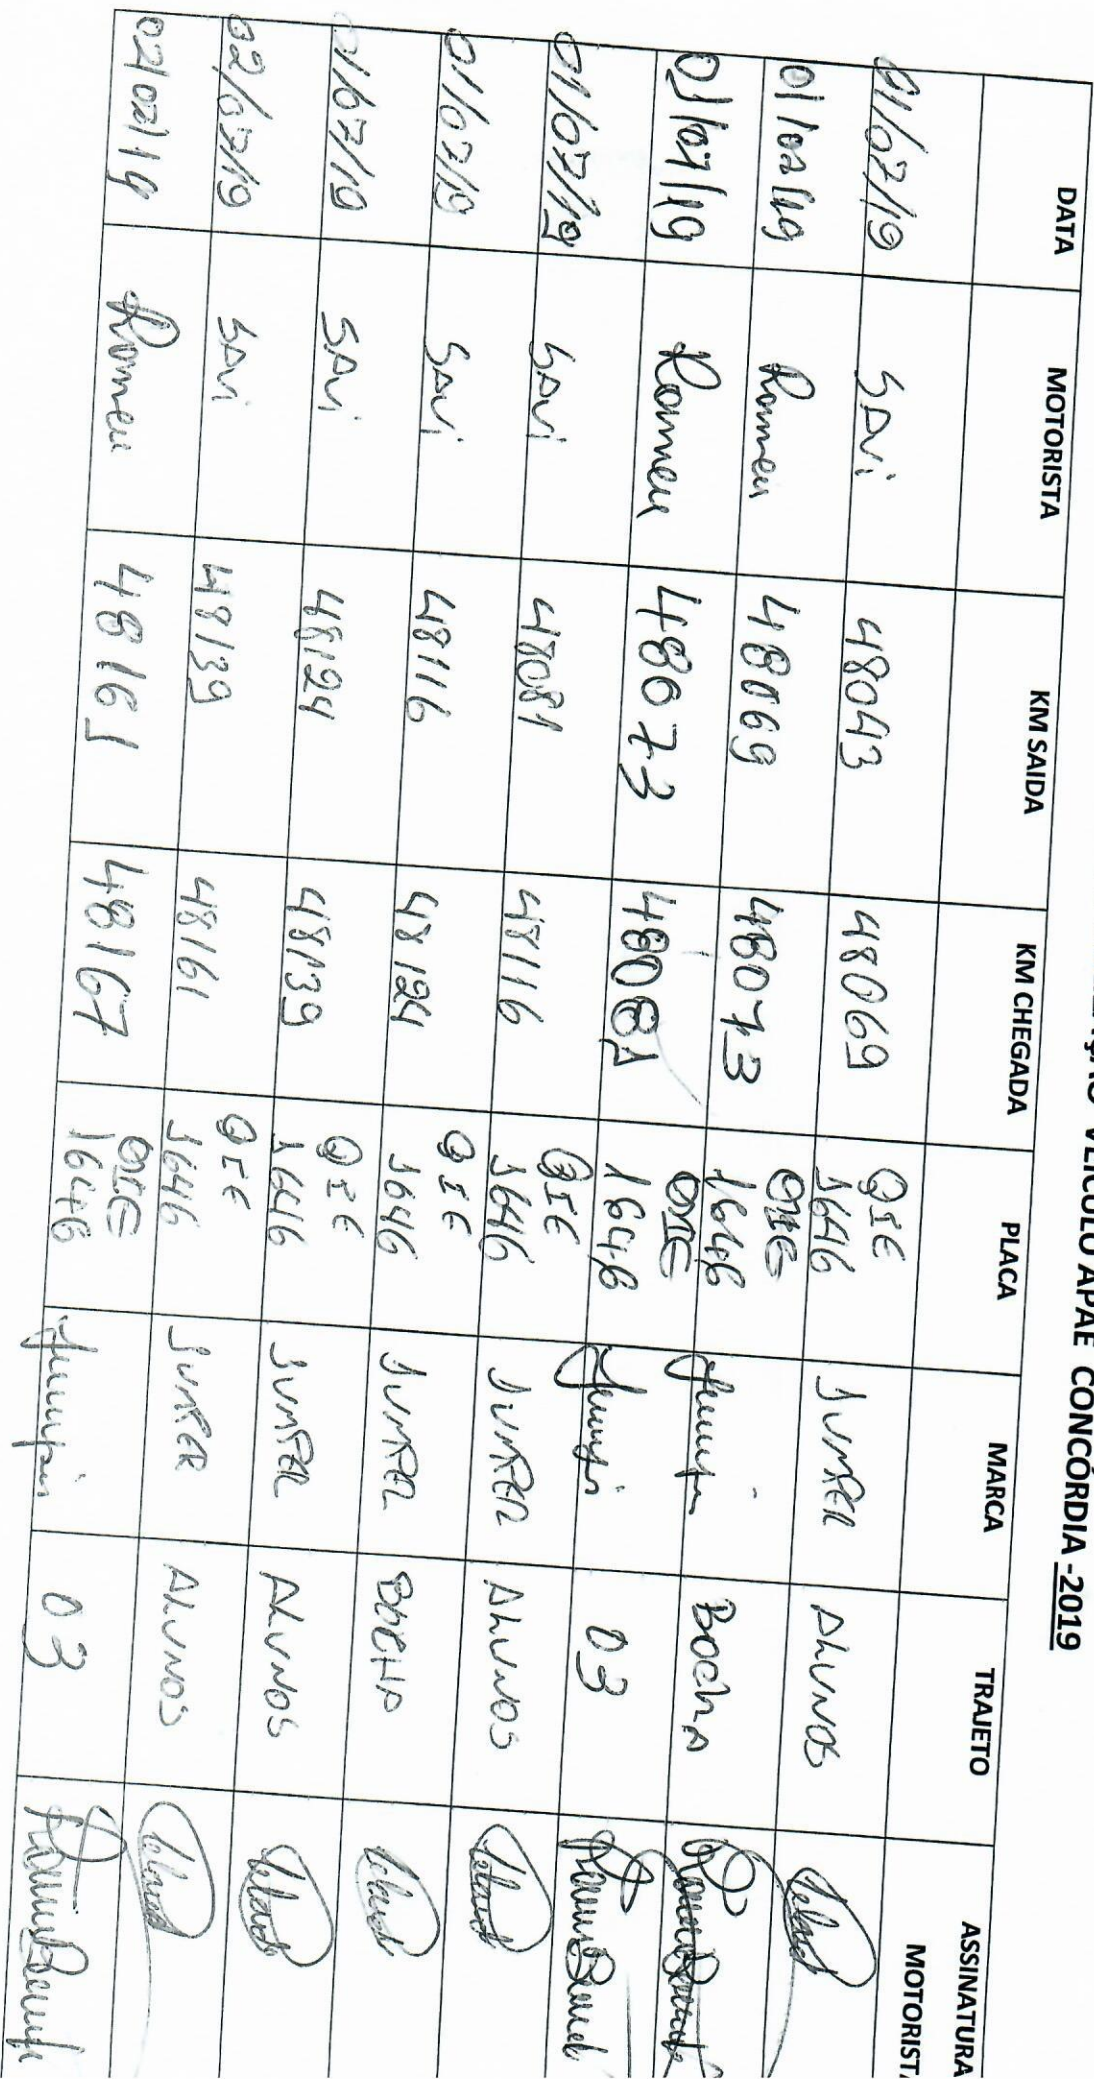 VEÍCULO APAE CONCÓRDIA -2019
DATA MOTORISTA KM SAIDA KM CHEGADA PLACA MARCA TRAJETO ASSINATURA MOTORIST
01/07/19 SAVi 48043 48069 QIE 1646 JUMPER ALUNOS
01/07/19 Romeu 48069 48073 QIE 1646 BOCHA
01/07/19 Romeu 48073 48081 QIE 1646 03
01/07/19 SAVi 48081 48116 QIE 1646 JUMPER ALUNOS
01/07/19 SAVi 48116 48124 QIE 1646 JUMPER BOCHA
01/07/19 SAVi 48124 48139 QIE 1646 JUMPER ALUNOS
02/07/19 SAVi 48139 48161 QIE 1646 JUMPER ALUNOS
02/07/19 Romeu 48161 48167 QIE 1646 03